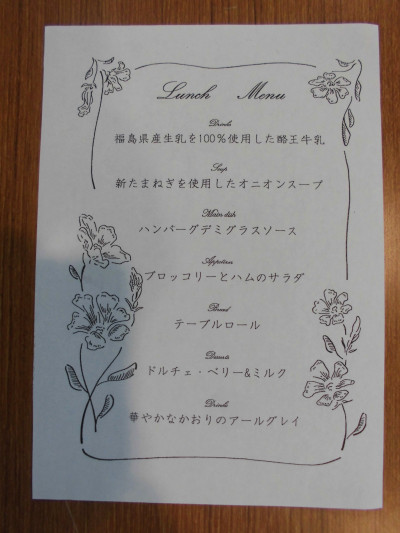 Lunch Menu
Drink
福島県産生乳を100%使用した酪王牛乳
Soup
新たまねぎを使用したオニオンスープ
Main dish
ハンバーグデミグラスソース
ブロッコリーとハムのサラダ
Bread
テーブルロール
ドルチェ・ベリー&ミルク
Drink
華やかなかおりのアールグレイ